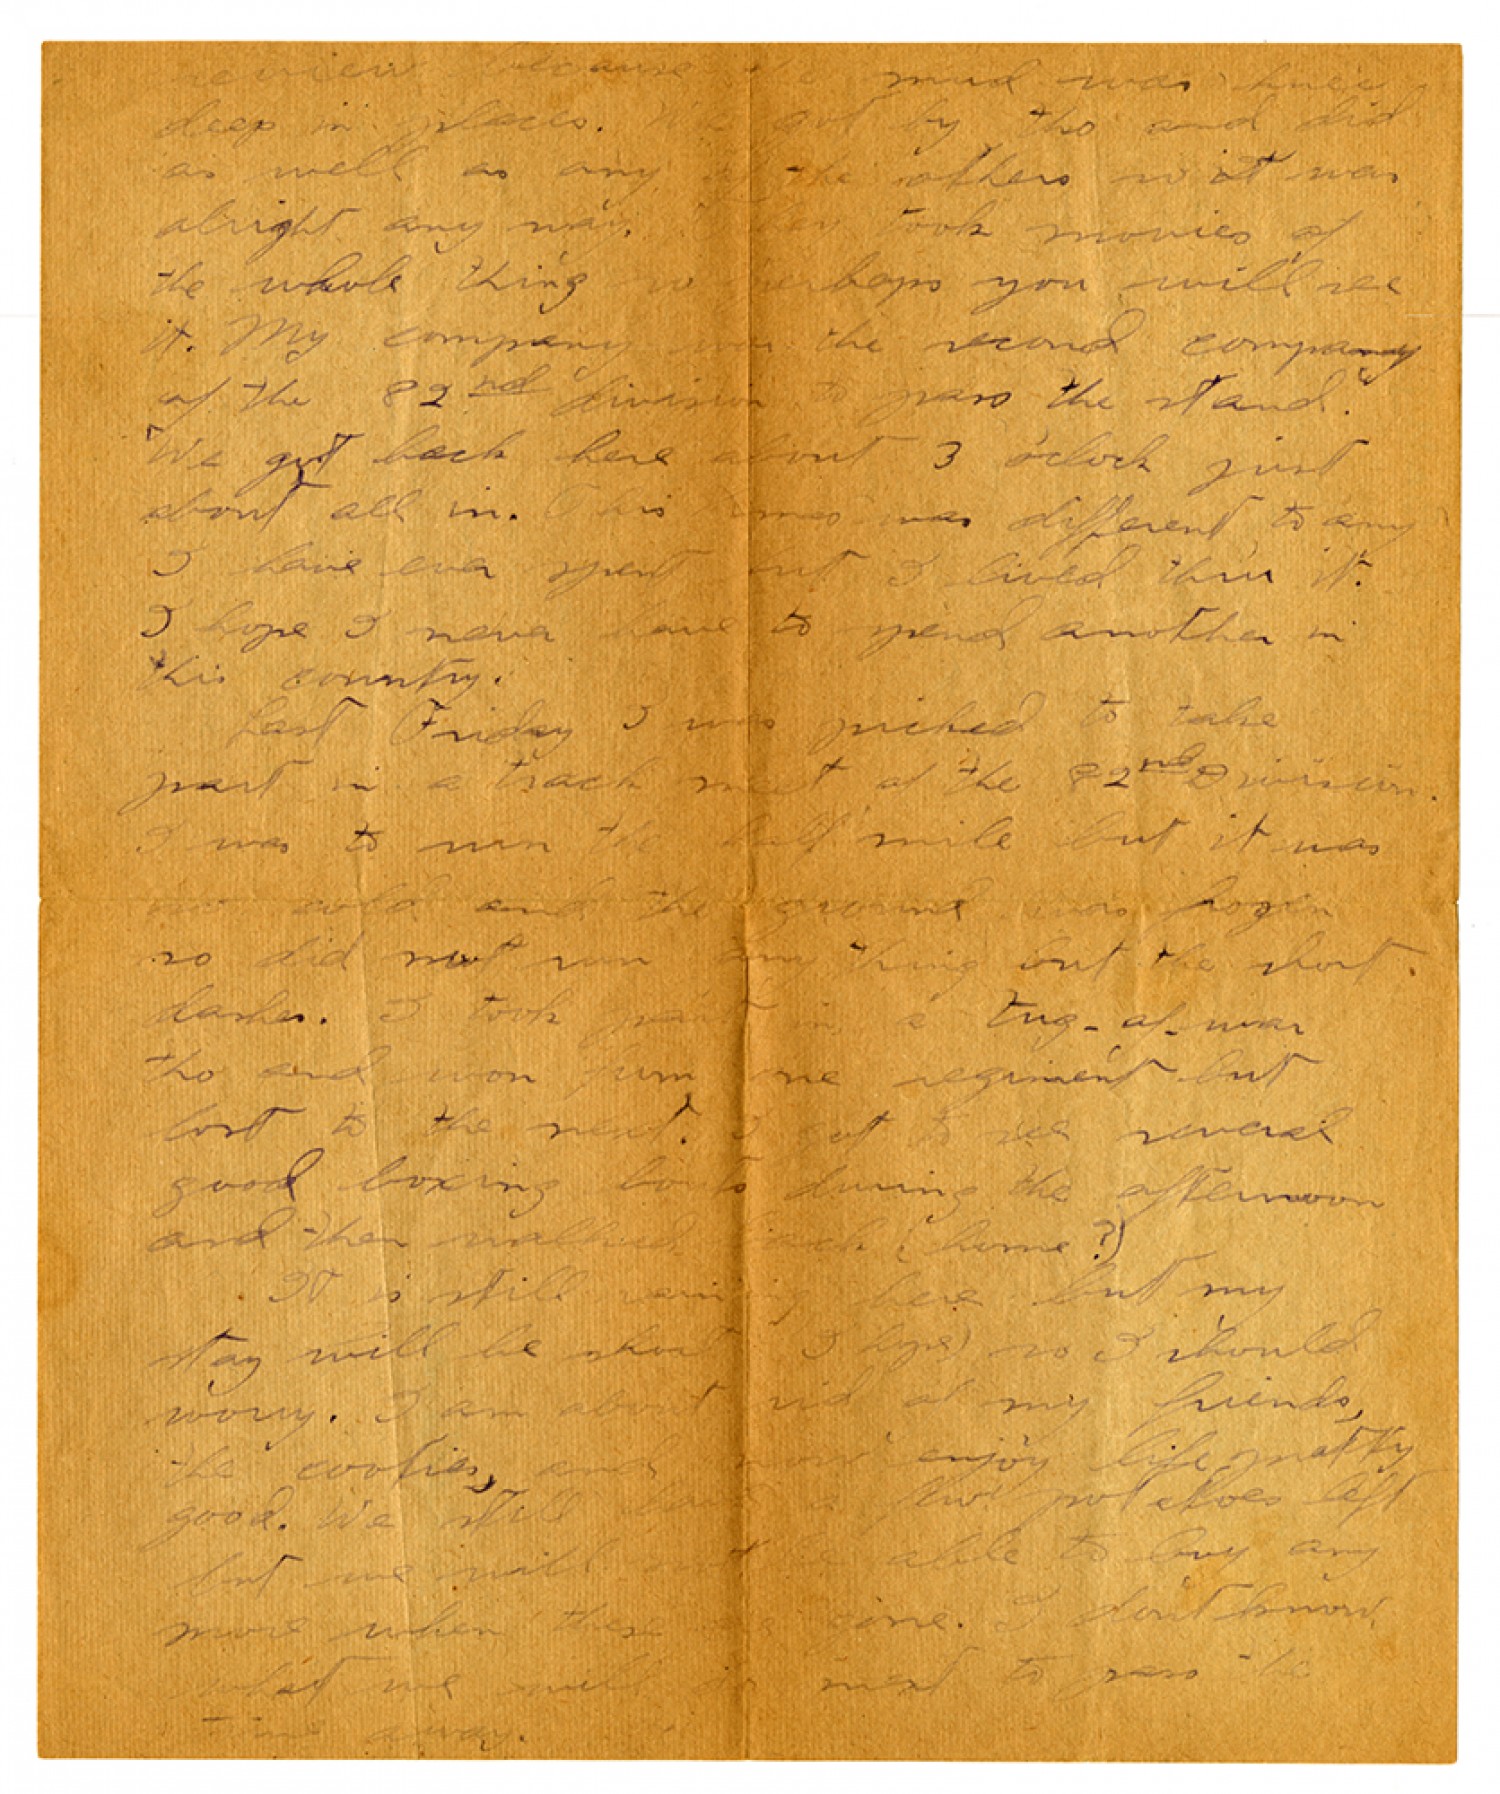 review because the mud was knee
deep in places. We got by tho and did
as well as any of the others so it was
alright any way. They took movies of
the whole thing so perhaps you will see
it. My company was the second company
of the 82nd division to pass the stand.
We got back here about 3 o'clock just
about all in. This Xmas was different to any
I have ever spent but I lived thru it.
I hope I never have to spend another in
this country.
Last Friday I was picked to take
part in a track meet of the 82nd Division.
I was to run the half mile but it was
so cold and the ground was frozen
so did not run any thing but the short
dashes. I took part in a tug-of-war
tho and won from one regiment but
lost to the next. I got to see several
good boxing bouts during the afternoon
and then walked back (home?)
It is still raining here but my
stay will be short (I hope) so I should
worry. I am about rid of my friends,
the cooties, and now enjoy life pretty
good. We still have a few potatoes left
but we will not be able to buy any
more when these are gone. I don't know
what we will do next to pass the
time away.